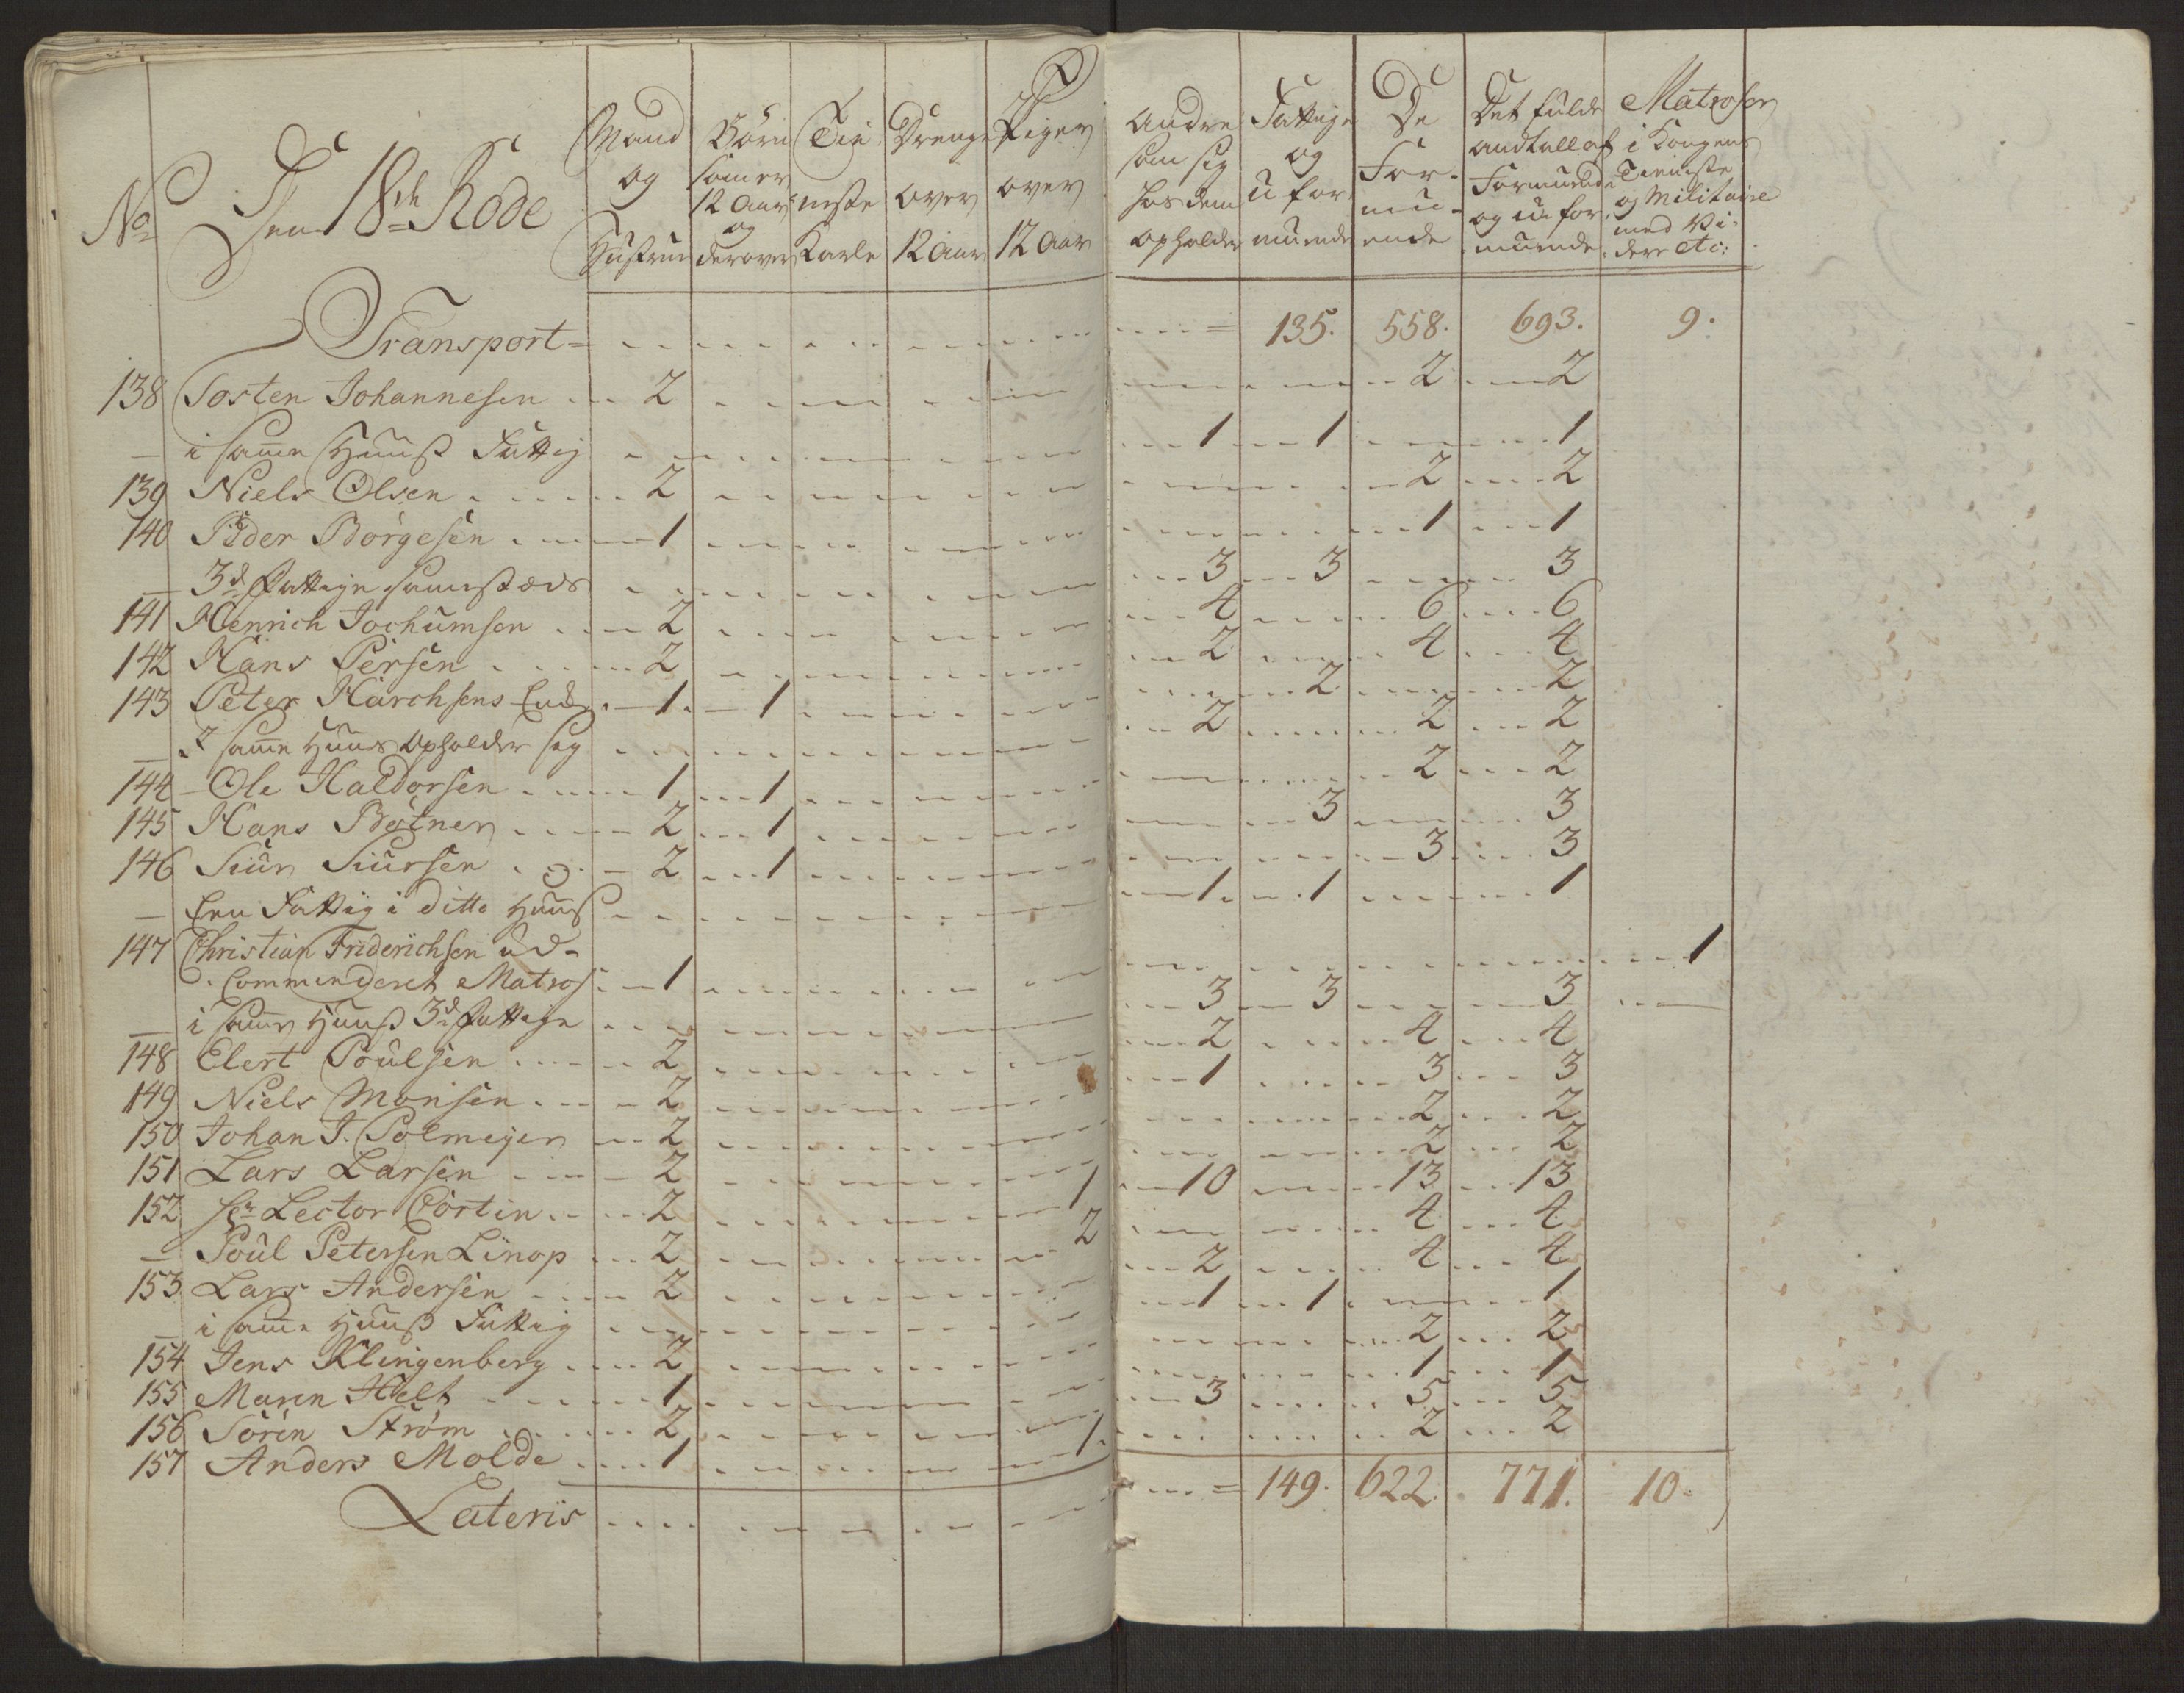 No
Den 18de Rode
Mand og Hustrue
Börn som er 12 Aar og derover
Tieneste Karle
Drenge over 12 Aar
Piger over 12 Aar
Andre som sig hos dem opholder
Fattige og uformuende
De Formuende
Det fulde Andtall af Formuende og uformuende
Matroser i Kongens Tieniste og Militaire med Videre etc:
Transport = 135. 558. 693. 9.
138 Tosten Johannesen 2 2 2
— i samme Huuss Fattig 1 1 1
139 Niels Olsen 2 2 2
140 Peder Börgesen 1 1 1
— 3de Fattige sammestæds 3 3 3
141 Henrich Jochumsen 2 4 6 6
142 Hans Persen 2 2 4 4
143 Peter Harchsens Enke 1 1 2 2
— I samme Huus opholder sig 2 2 2
144 Ole Haldorsen 1 1 2 2
145 Hans Bötner 2 1 3 3
146 Siur Siursen 2 1 3 3
— Een Fattig i ditto Huus 1 1 1
147 Christian Friderichsen ud-
Commenderet Matros 1 1
— i samme Huuss 3de fattige 3 3 3
148 Elert Poulsen 2 2 4 4
149 Niels Monsen 2 1 3 3
150 Johan J. Polmeyer 2 2 2
151 Lars Larsen 2 2 2
152 Hr Lector Cörtin 2 1 10 13 13
— Poul Petersen Linop 2 2 4 4
153 Lars Andersen 2 2 4 4
— i samme Huuss Fattig 1 1 1
154 Jens Klingenberg 2 2 2
155 Maren Helt 1 1 1
156 Sören Ström 2 3 5 5
157 Anders Molde 1 1 2 2
Lateris = 149. 622. 771. 10.